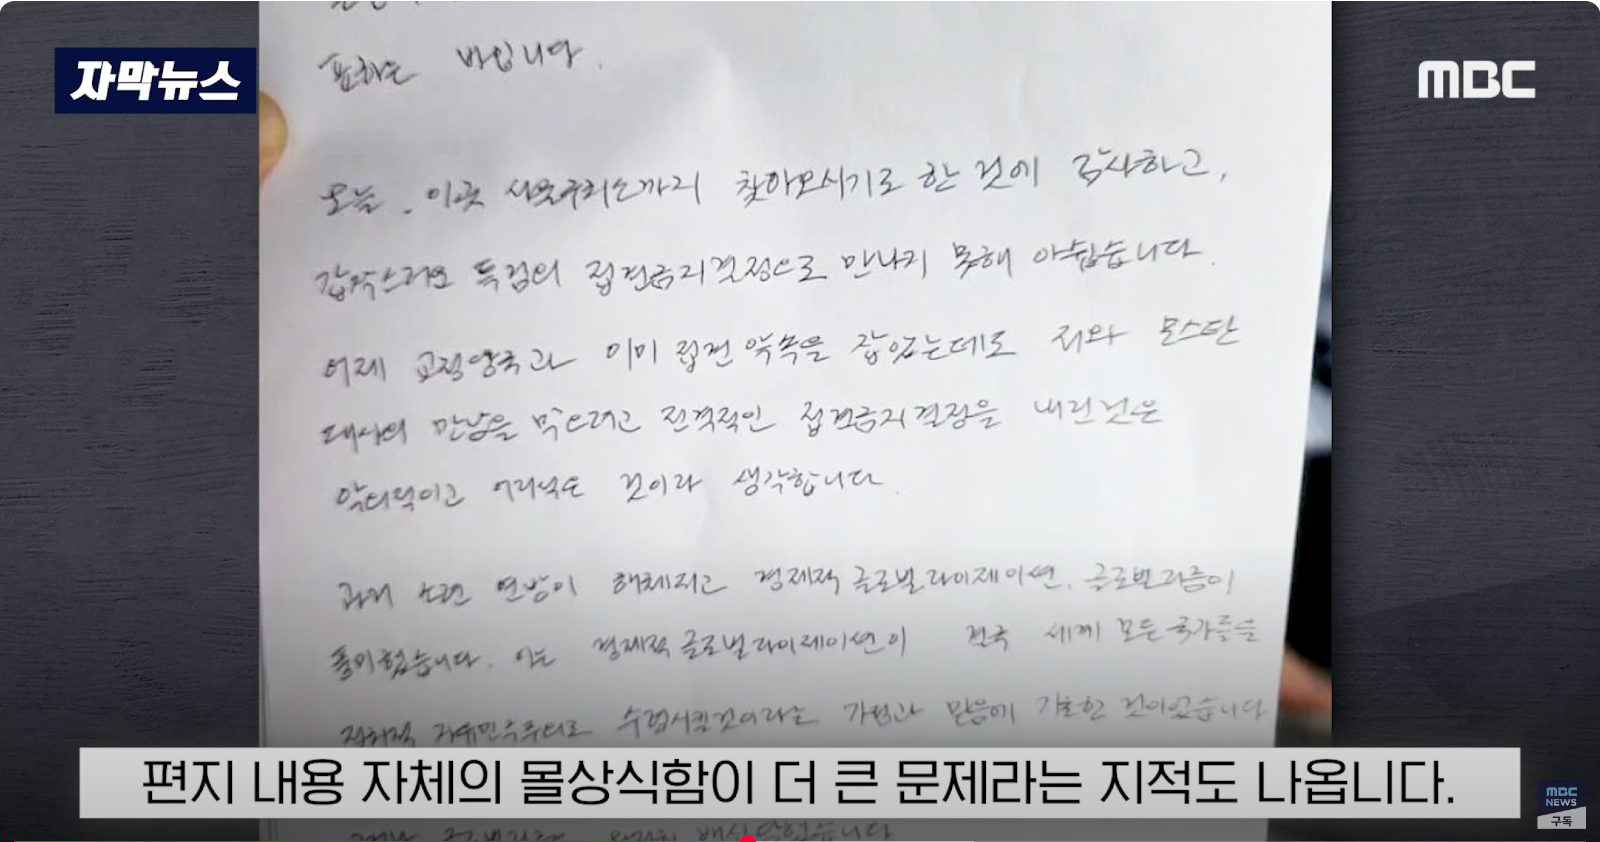 자막뉴스
MBC
표하는 바입니다.
오늘, 이곳 서울구치소까지 찾아오시기로 한 것에 감사하고,
갑작스러운 특검의 접견금지결정으로 만나지 못해 아쉽습니다.
어제 교정당국과 이미 접견 약속을 잡았는데도 저와 모스탄
대사의 만남을 막으려고 전격적인 접견금지결정을 내린것은
악의적이고 어리석은 것이라 생각합니다.
과거 소련 연방이 해체되고 경제적 글로벌라이제이션, 글로벌리즘이
풍미했습니다. 이는 경제적 글로벌라이제이션이 결국 세계 모든 국가들을
정치적 자유민주주의로 수렴시킬것이라는 가정과 믿음에 기초한 것이었습니다
편지 내용 자체의 몰상식함이 더 큰 문제라는 지적도 나옵니다.
배신당했습니다
MBC
NEWS
구독